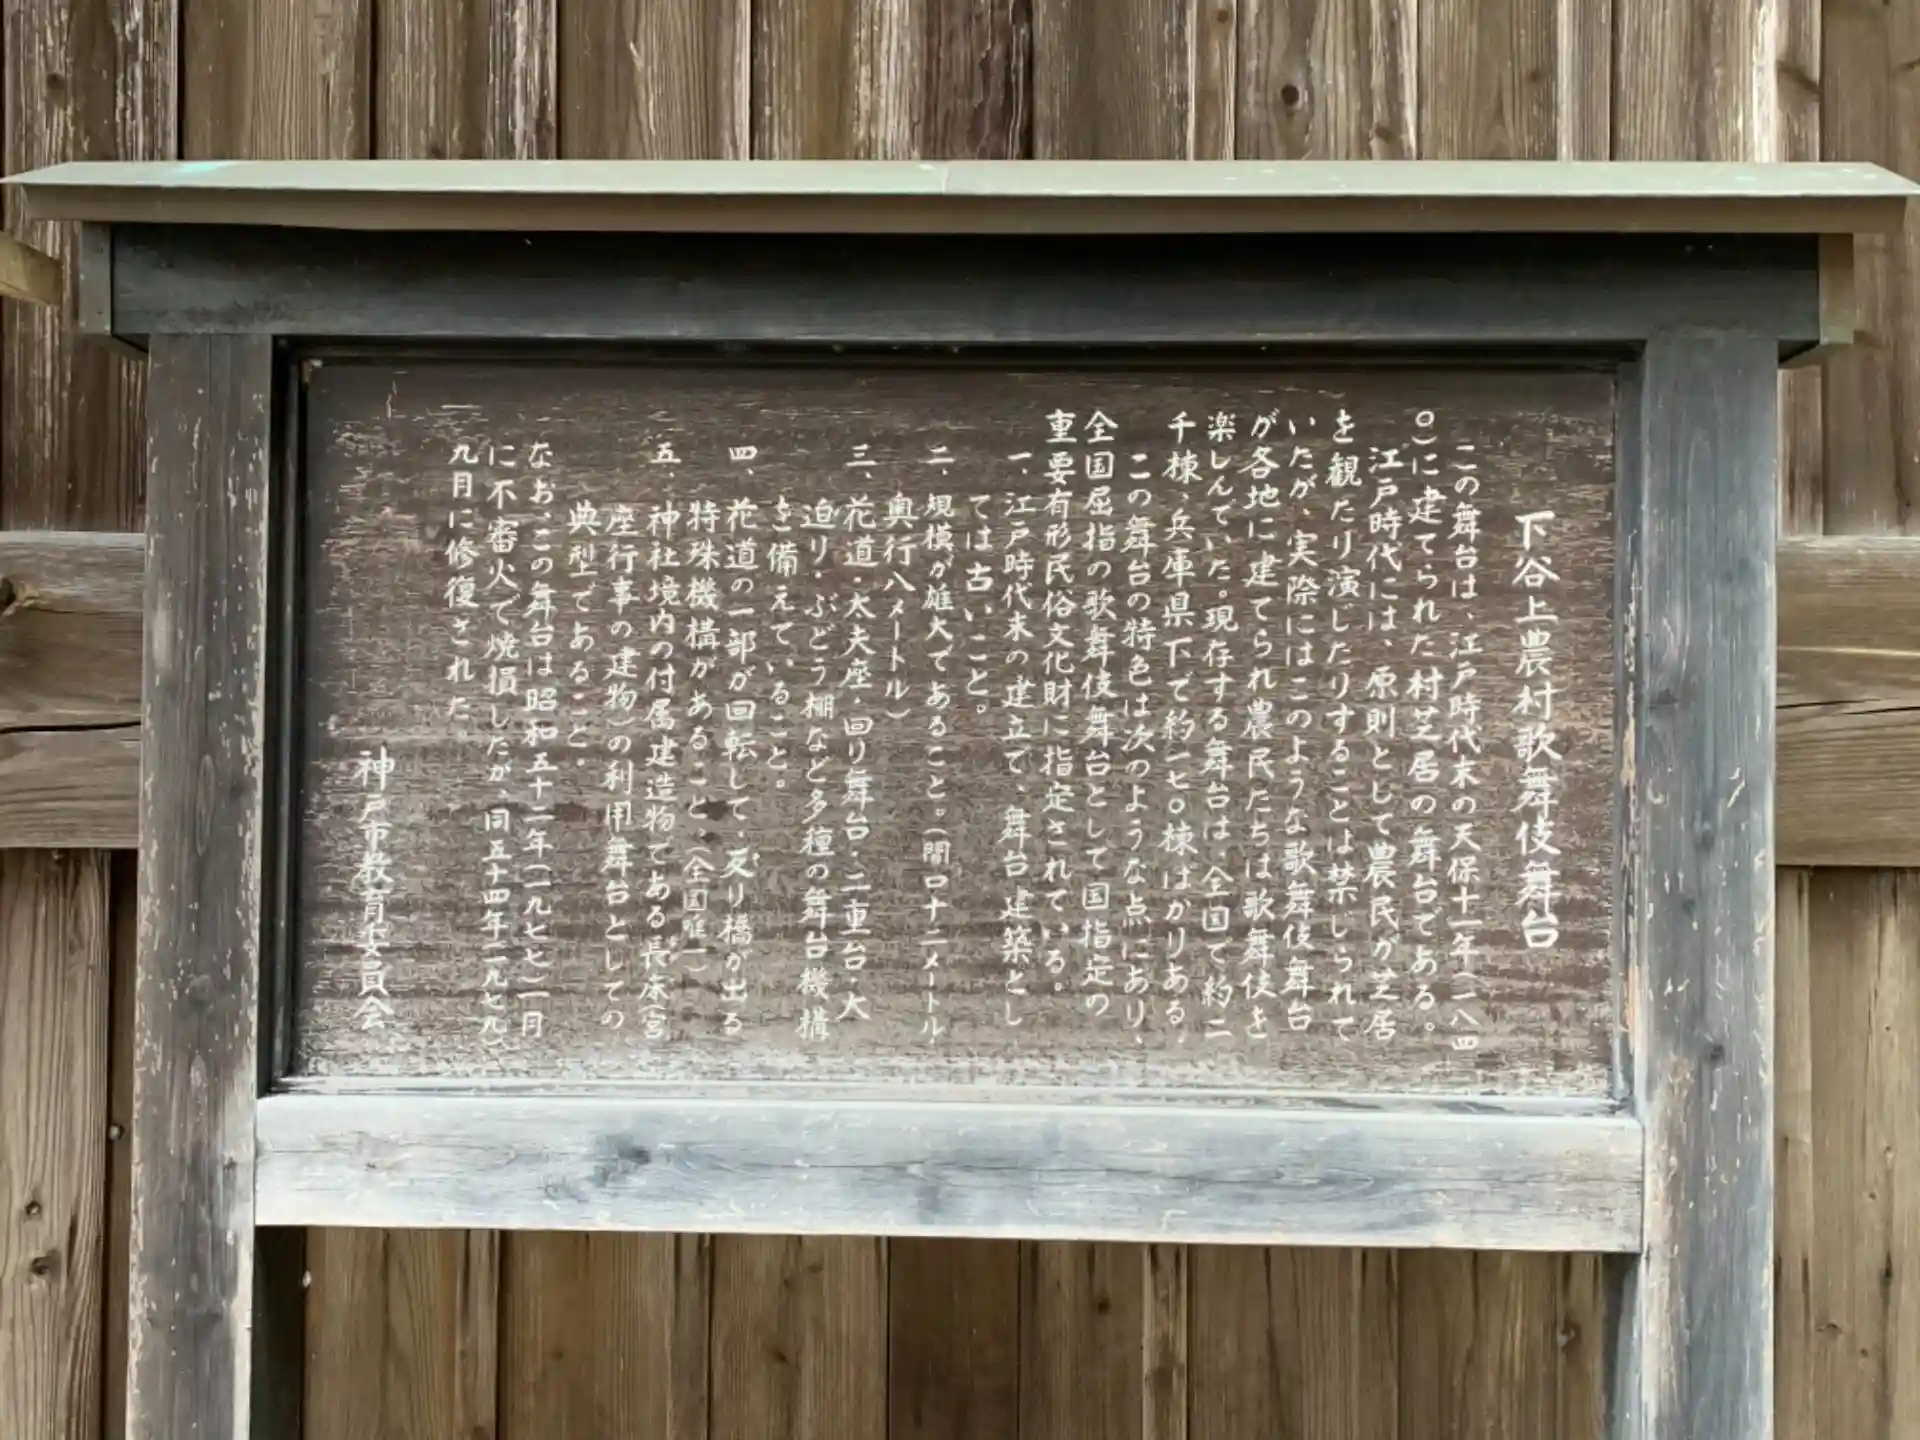 下谷上農村歌舞伎舞台
この舞台は、江戸時代末の天保十一年(一八四
〇)に建てられた村芝居の舞台である。
江戸時代には、原則として農民が芝居
を観たり演じたりすることは禁じられて
いたが、実際にはこのような歌舞伎舞台
が各地に建てられ農民たちは歌舞伎を
楽しんでいた。現存する舞台は、全国で約二
千棟、兵庫県下で約一七〇棟ばかりある。
この舞台の特色は次のような点にあり、
全国屈指の歌舞伎舞台として国指定の
重要有形民俗文化財に指定されている。
一、江戸時代末の建立で、舞台建築とし
ては古いこと。
二、規模が雄大であること。(間口十二メートル、
奥行八メートル)
三、花道・太夫座・回り舞台・二重台・大
迫り・ぶどう棚など多種の舞台機構
を備えていること。
四、花道の一部が回転して、反り橋が出る
特殊機構があること。(全国唯一)
五、神社境内の付属建造物である長床(宮
座行事の建物)の利用舞台としての
典型であること。
なお、この舞台は昭和五十二年(一九七七)一月
に不審火で焼損したが、同五十四年(一九七九)
九月に修復された。
神戸市教育委員会